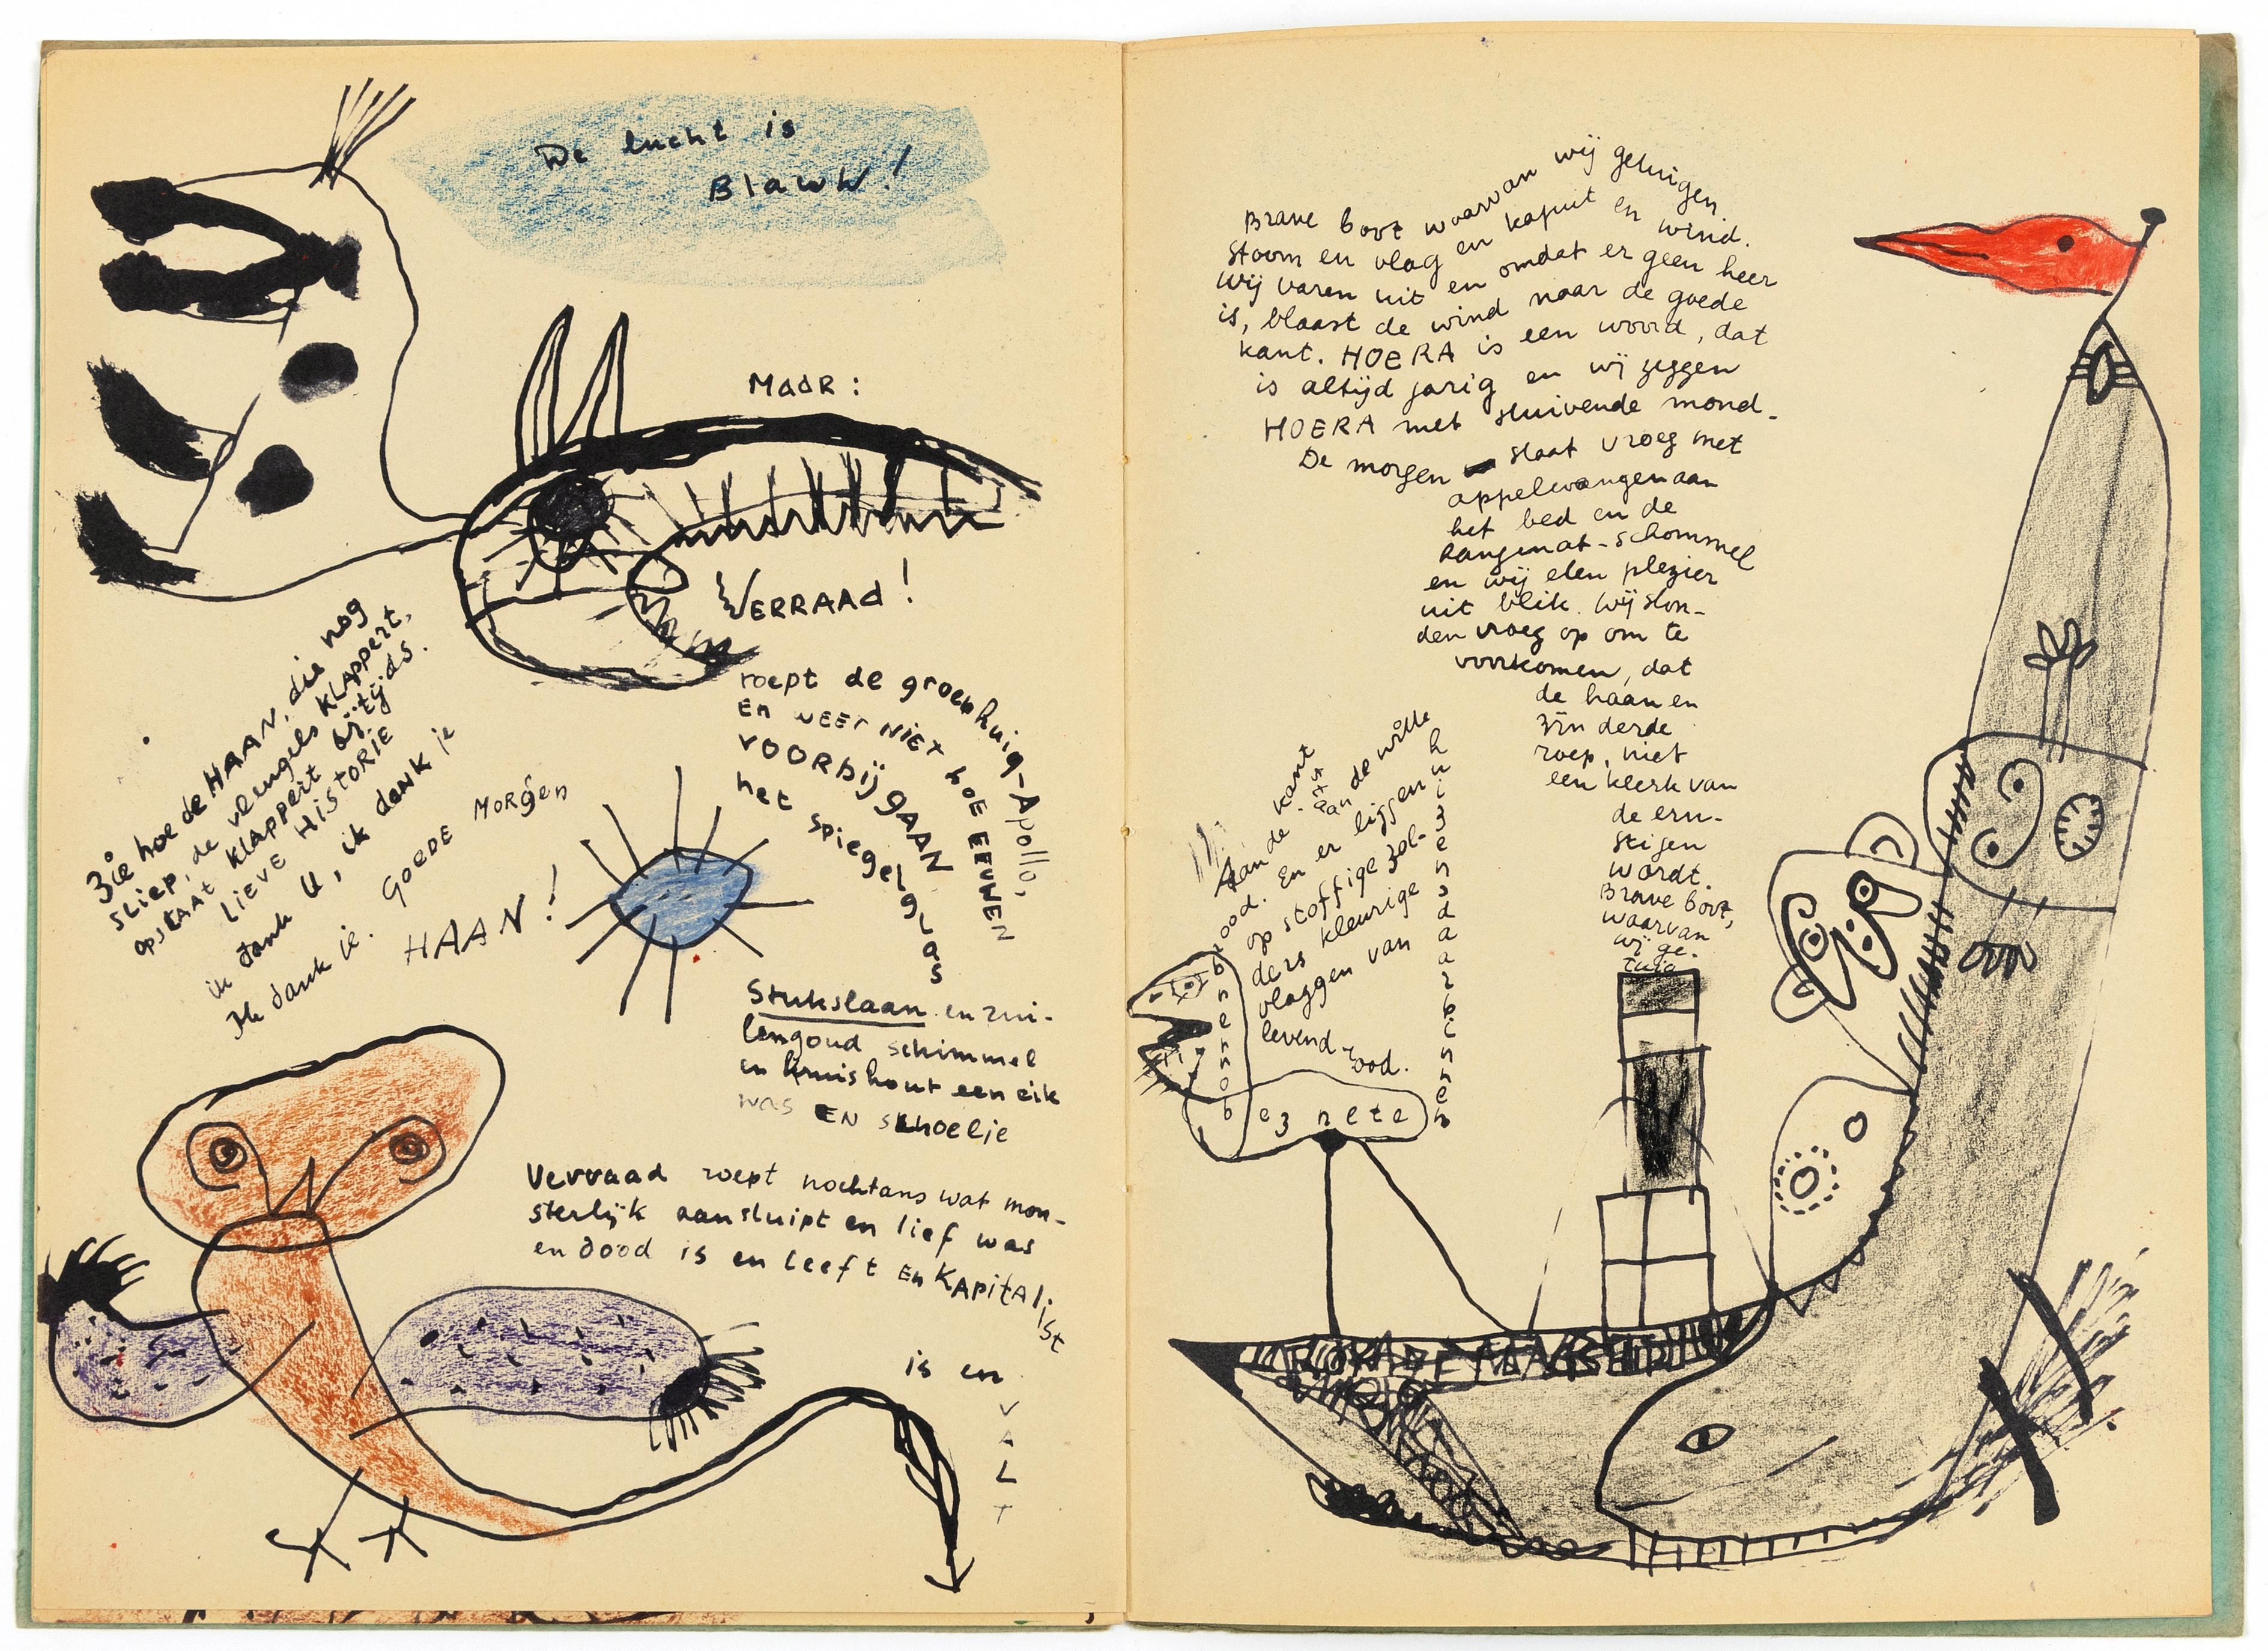 De lucht is
Blauw!
Maar:
VERRAAd!
roept de groenhuig-Apollo,
En weer niet hoe EEUWEN
VOORbij gAAN
het spiegelglas
Zie hoe de HAAN, die nog
sliep, de vleugels KLAppert,
opstaat klappert bij tijds.
LIEVE HISTORIE
ik dank U, ik dank je
Ik dank je. GOEDE MORgen
HAAN!
Stukslaan en zui-
lengoud schimmel
en kruishout een eik
was EN schoelje
Verraad roept nochtans wat mon-
sterlijk aansluipt en lief was
en dood is en leeft En KApitAlist
is en
VALT
Brave boot waarvan wij getuigen
stoom en vlag en kapuit en wind.
Wij varen uit en omdat er geen heer
is, blaast de wind naar de goede
kant. HOERA is een woord, dat
is altijd jarig en wij zeggen
HOERA met stuivende mond.
De morgen staat vroeg met
appelwangen aan
het bed en de
hangmat-schommel
en wij eten plezier
uit blik. Wij ston-
den vroeg op om te
voorkomen, dat
de haan en
zijn derde
roep, niet
een klerk van
de ern-
stigen
wordt.
Brave boot,
waarvan
wij ge-
tuig
Aan de kant
is aan de witte
huizen is daar binnen
rood. En er liggen
op stoffige zol-
ders kleurige
vlaggen van
levend-
rood.